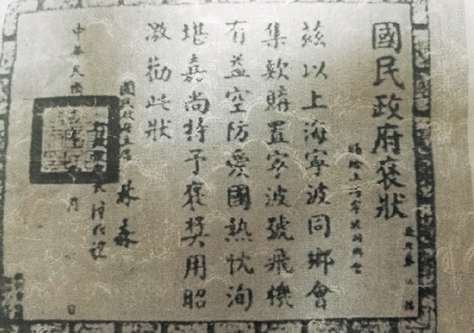 國民政府褒狀
頒給上海寧波同鄉會
茲以上海寧波同鄉會
集款購置寧波號飛機
有益空防愛國熱忱洵
堪嘉尚特予褒獎用昭
激勸此狀
國民政府主席 林森
行政院院長 汪兆銘
中華民國 年 月 日